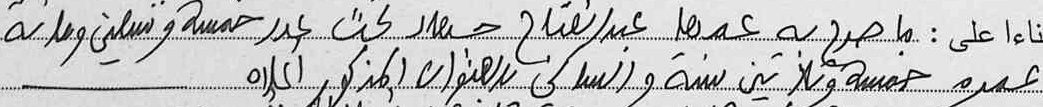 ناءا على : ما صرح به عمرها عبد الفتاح تحت عدد خمسة وستين ومائة
عمره خمسة وثلاثين سنة والساكن بالعنوان المذكور أعلاه